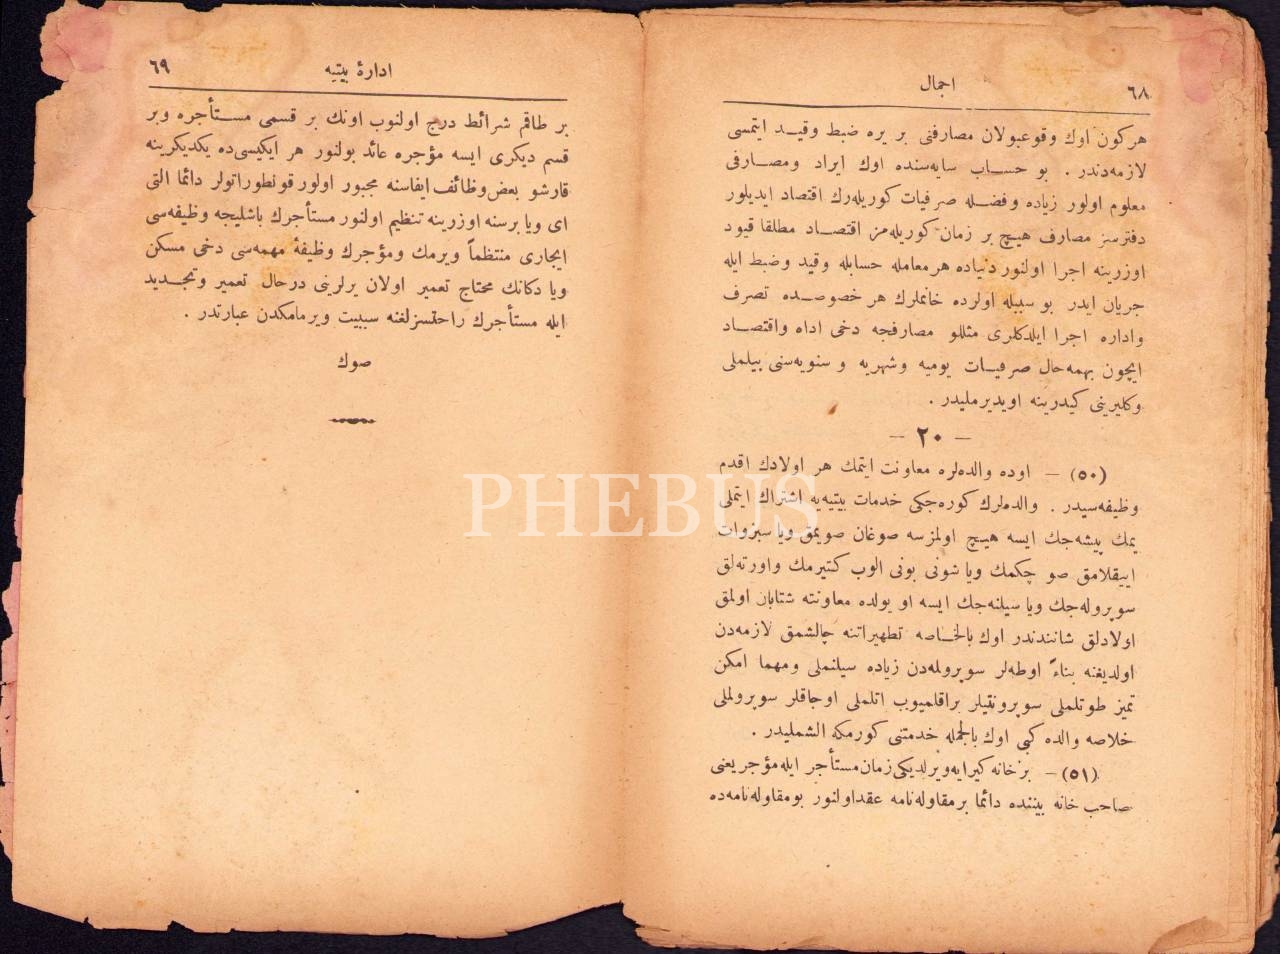 ٦٨
اجمال
هركون اوك وقوعبولان مصارفنى بر يره ضبط وقيـد ايتمسى
لازمه‌دندر . بو حسـاب سايه‌سنده اوك ايراد ومصـارفى
معلوم اولور زياده وفضـله صرفيات كوريله‌رك اقتصاد ايديلور
دفترسز مصارف هيچ بر زمان كوريله‌مز اقتصـاد مطلقا قيود
اوزرينه اجرا اولنور دنياده هرمعامله حسابله وقيد وضبط ايله
جريان ايدر بو سببله اولرده خانملرك هر خصوصـده تصرف
واداره اجرا ايلدكلرى مثللو مصارفجه دخى اداه واقتصـاد
ايچون بهمه‌حال صرفيـات يوميه وشهريه و سنويه‌سنى بيلملى
وكليرينى كيدرينه اويديرمليدر .
— ٢٠ —
(٥٠) — اوده والده‌لره معاونت ايتمك هر اولادك اقدم
وظيفه‌سيدر . والده‌لرك كوره‌جكى خدمات بيتيه‌يه اشتراك ايتملى
يمك پيشه‌جك ايسه هيـچ اولمزسه صوغان صويمق ويا سبزوات
آييقلامق صو چكمك ويا شونى بونى الوب كتيرمك واورته‌لق
سوپروله‌جك ويا سيلنه‌جك ايسه او يولده معاونته شتابان اولمق
اولادلق شانندندر اوك بالخـاصه تطهيراتنه چالشمق لازمه‌دن
اولديغنه بناءً اوطه‌لر سوپرولمه‌دن زياده سيلنملى ومهما امكن
تميز طوتلملى سوپرونتيلر براقلميوب اتلملى اوجاقلر سوپرولملى
خلاصه والده كبى اوك بالجمله خدمتنى كورمكه الشمليدر .
(٥١) — برخانه كيرايه‌ويرلديكى زمان مستأجر ايله مؤجر يعنى
صاحب خانه بيننده دائما بر مقاوله‌نامه عقداولنور بومقاوله‌نامه‌ده
ادارۀ بيتيه
٦٩
بر طاقم شرائط درج اولنوب اونك بر قسمى مسـتأجره وبر
قسم ديكرى ايسه مؤجره عائد بولنور هر ايكيسى‌ده يكديكرينه
قارشو بعض وظائف ايفاسنه مجبور اولور قونطوراتولر دائما التى
اى ويا برسنه اوزرينه تنظيم اولنور مستأجرك باشليجه وظيفه‌سى
ايجارى منتظماً ويرمك ومؤجرك وظيفۀ مهمه‌سى دخى مسكن
ويا دكانك محتاج تعمير اولان يرلرينى درحال تعمير وتجـديد
ايله مستأجرك راحتسزلغنه سببيت ويرمامكدن عبارتدر .
صوك
PHEBUS